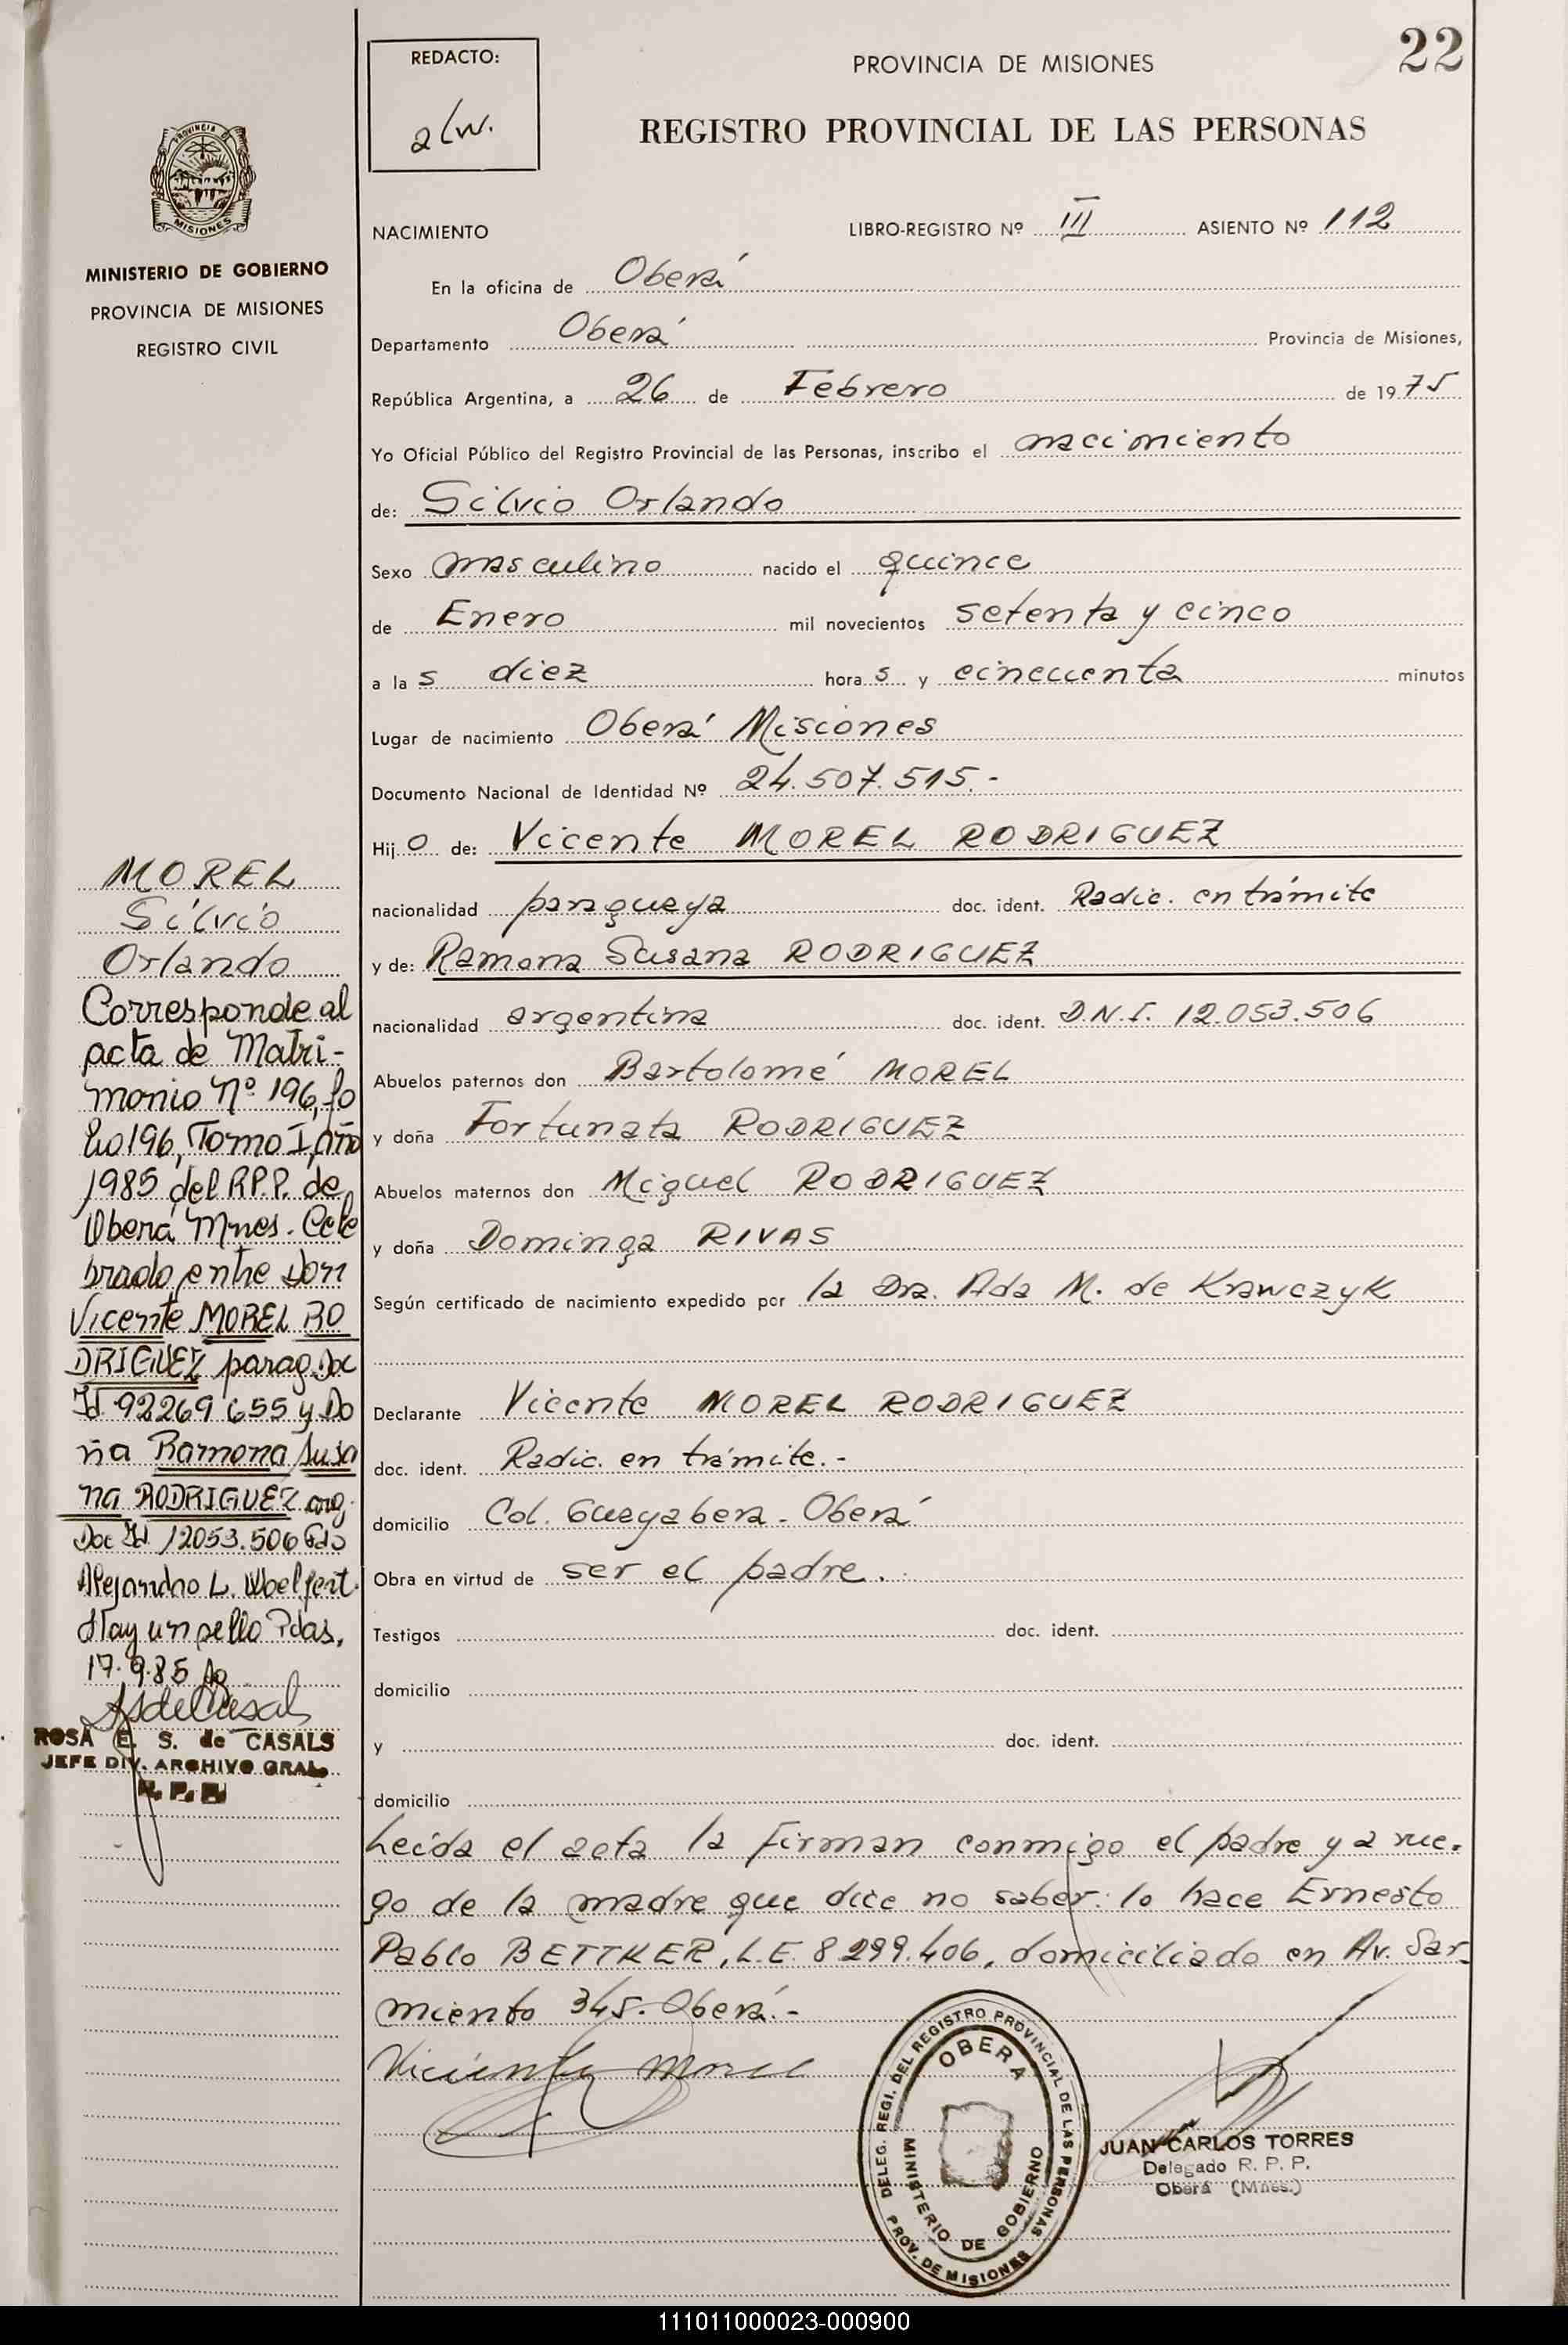 22
REDACTO:
PROVINCIA DE MISIONES
REGISTRO PROVINCIAL DE LAS PERSONAS
PROVINCIA D
MISIONES
MINISTERIO DE GOBIERNO
PROVINCIA DE MISIONES
REGISTRO CIVIL
NACIMIENTO LIBRO-REGISTRO Nº III ASIENTO Nº 112
En la oficina de Oberá
Departamento Oberá Provincia de Misiones,
República Argentina, a 26 de Febrero de 1975
Yo Oficial Público del Registro Provincial de las Personas, inscribo el nacimiento
de: Silvio Orlando
Sexo masculino nacido el quince
de Enero mil novecientos setenta y cinco
a las diez horas y cincuenta minutos
Lugar de nacimiento Oberá Misiones
Documento Nacional de Identidad Nº 24.507.515.-
Hijo de: Vicente MOREL RODRIGUEZ
nacionalidad paraguaya doc. ident. Radic. en trámite
y de: Ramona Susana RODRIGUEZ
nacionalidad argentina doc. ident. D.N.I. 12.053.506
Abuelos paternos don Bartolomé MOREL
y doña Fortunata RODRIGUEZ
Abuelos maternos don Miguel RODRIGUEZ
y doña Dominga RIVAS
Según certificado de nacimiento expedido por la Dra. Ada M. de Krawczyk
Declarante Vicente MOREL RODRIGUEZ
doc. ident. Radic. en trámite.-
domicilio Col. Guayabera - Oberá
Obra en virtud de ser el padre.
Testigos doc. ident.
domicilio
y doc. ident.
domicilio
Leída el acta la firman conmigo el padre y a rue-
go de la madre que dice no saber: lo hace Ernesto
Pablo BETTKER, L.E. 8299.406, domiciliado en Av. Sar-
miento 345. Oberá.-
MOREL
Silvio
Orlando
Corresponde al
acta de Matri-
monio Nº 196, fo
lio 196, Tomo I, año
1985 del R.P.P. de
Oberá Mnes. Cele
brado entre Don
Vicente MOREL RO
DRIGUEZ parag. Doc
Id 92269655 y Do
ña Ramona Susa
na RODRIGUEZ arg.
Doc Id 12053.506 Fdo
Alejandro L. Woelfert.
Hay un sello Pdas,
17.9.85
ROSA E. S. de CASALS
JEFE DIV. ARCHIVO GRAL.
R. P. P.
DELEG. REGI. DEL REGISTRO PROVINCIAL DE LAS PERSONAS
OBERA
MINISTERIO DE GOBIERNO
PROV. DE MISIONES
JUAN CARLOS TORRES
Delegado R. P. P.
Oberá (Mnes.)
111011000023-000900